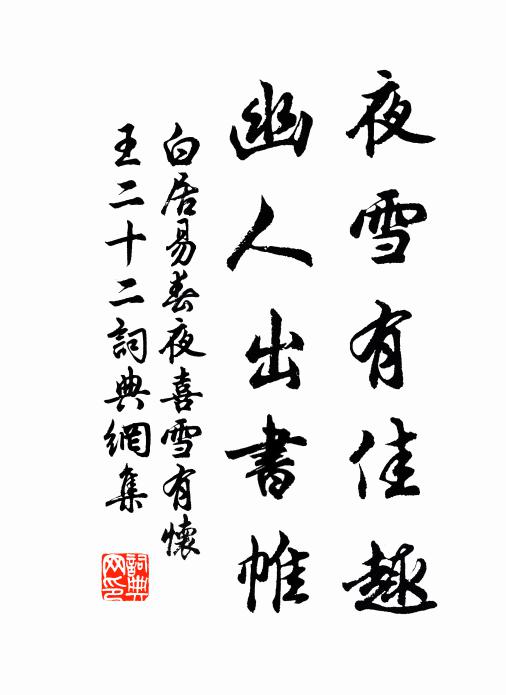 夜雪有佳趣
幽人出書帷
白居易春夜喜雪有懷
王二十二詞典網集
詞典
网印